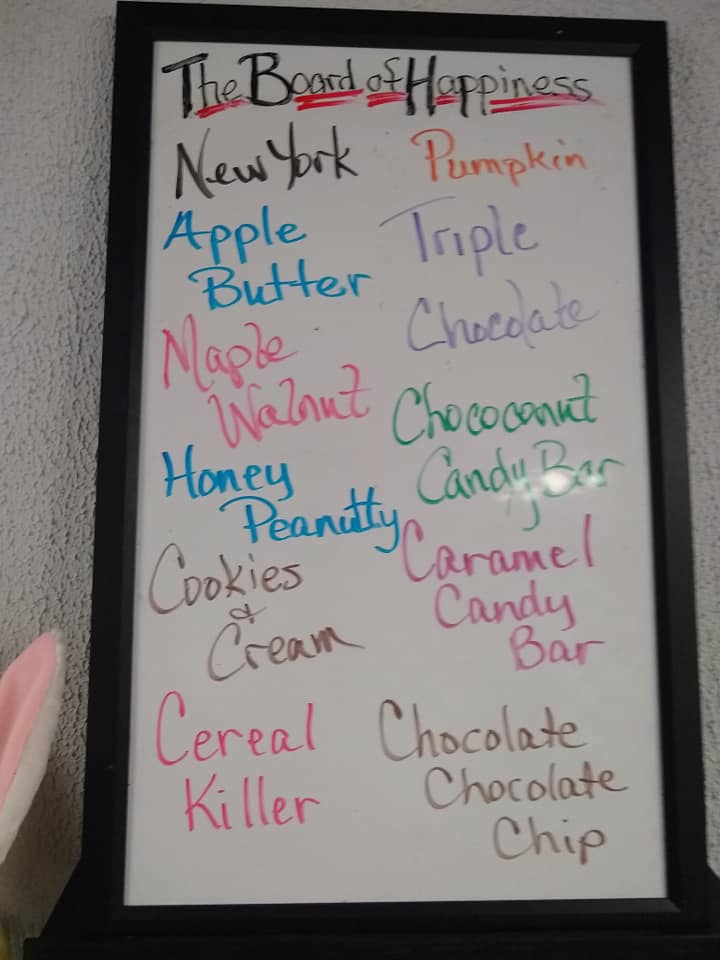 The Board of Happiness
New York
Apple
Butter
Maple
Walnut
Honey
Peanutty
Cookies
&
Cream
Cereal
Killer
Pumpkin
Triple
Chocolate
Chococonut
Candy Bar
Caramel
Candy
Bar
Chocolate
Chocolate
Chip